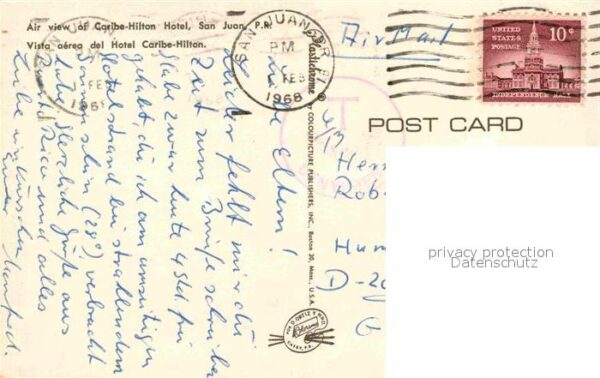 Air view of Caribe-Hilton Hotel, San Juan, P.R.
Vista aérea del Hotel Caribe-Hilton.
SAN JUAN, P.R.
PM
FEB
1968
Air Mail
UNITED STATES POSTAGE
10¢
INDEPENDENCE HALL
POST CARD
Plastichrome ® by COLOURPICTURE PUBLISHERS, INC., Boston 30, Mass., U.S.A.
Liebe Eltern!
Leider fehlt mir die
Zeit zum Briefe schreiben.
Habe zwar heute 4 Std. frei
gehabt, die ich am
Hotelstrand bei strahlendem
Sonnenschein (28°) verbracht
habe. Herzliche Grüße aus
Puerto Rico und alles
Liebe
Euer Manfred.
Herr
Rob
Hum
D-2
G
privacy protection
Datenschutz